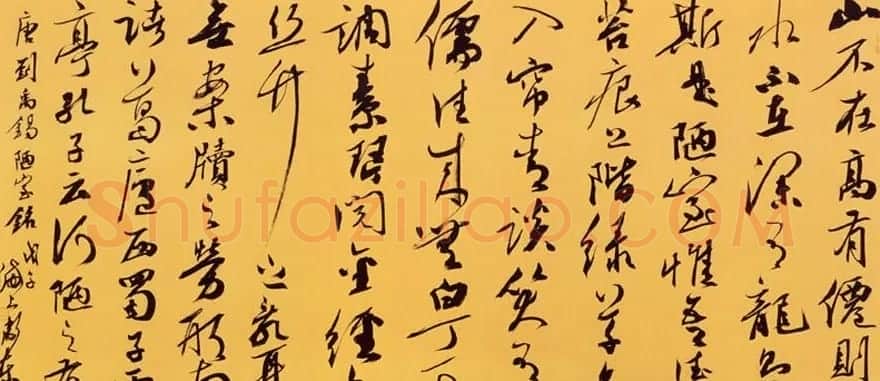 山不在高有僊則
水不在深有龍則
斯是陋室惟吾德
苔痕上階綠草
入帘青談笑有
儒往來無白丁可
調素琴閱金經
絲竹之亂耳
無案牘之勞形南
諸葛廬西蜀子雲
亭孔子云何陋之有
唐劉禹錫陋室銘 戊子
海上
Shufaziliao.COM